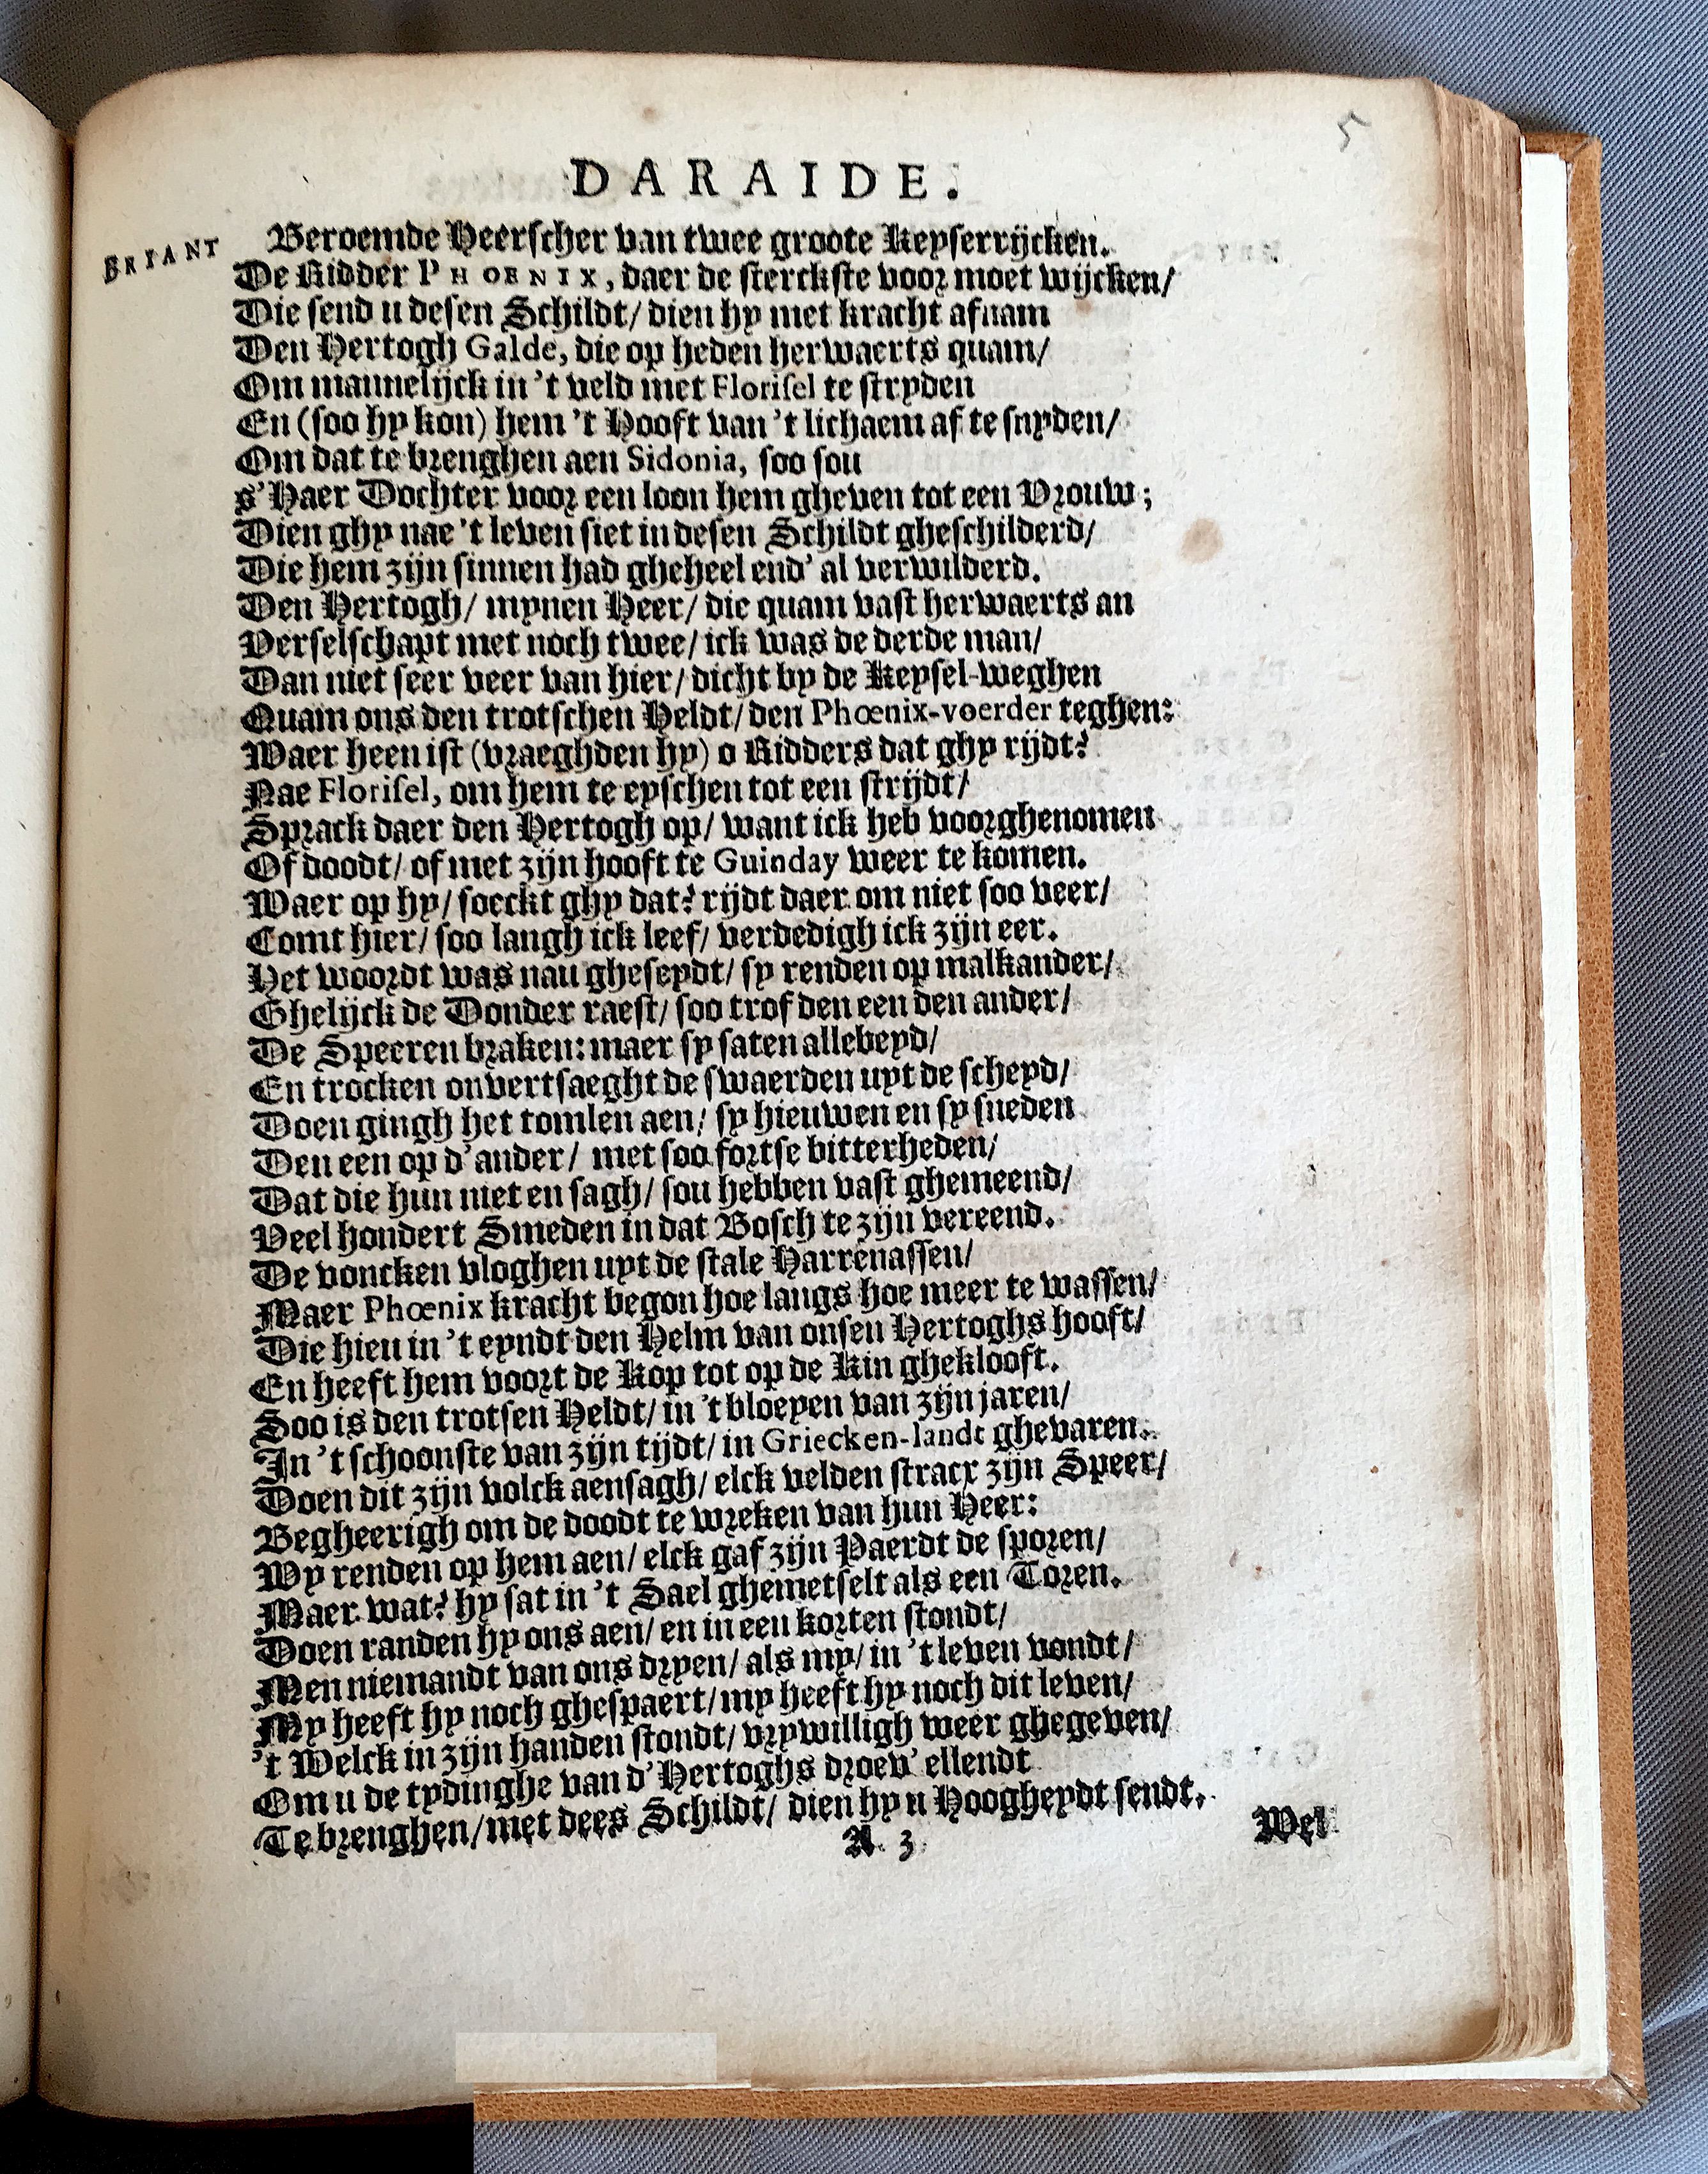 5
DARAIDE.
BRIANT Beroemde Heerſcher van twee groote Keyſerrijcken.
De Ridder PHOENIX, daer de ſterckſte voor moet wijcken/
Die ſend u deſen Schildt/ dien hy met kracht afnam
Den Hertogh Galde, die op heden herwaerts quam/
Om mannelijck in 't veld met Floriſel te ſtryden
En (ſoo hy kon) hem 't Hooft van 't lichaem af te ſnyden/
Om dat te brenghen aen Sidonia, ſoo ſou
s' Haer Dochter voor een loon hem gheven tot een Vrouw;
Dien ghy nae 't leven ſiet in deſen Schildt gheſchilderd/
Die hem zijn ſinnen had gheheel end' al verwilderd.
Den Hertogh/ mynen Heer/ die quam vaſt herwaerts an
Verſelſchapt met noch twee/ ick was de derde man/
Dan niet ſeer veer van hier/ dicht by de Keyſel-weghen
Quam ons den trotſchen Heldt/ den Phœnix-voerder teghen:
Waer heen iſt (vraeghden hy) o Ridders dat ghy rijdt?
Nae Floriſel, om hem te eyſchen tot een ſtrijdt/
Sprack daer den Hertogh op/ want ick heb voorghenomen
Of doodt/ of met zijn hooft te Guinday weer te komen.
Waer op hy/ ſoeckt ghy dat? rijdt daer om niet ſoo veer/
Comt hier/ ſoo langh ick leef/ verdedigh ick zijn eer.
Het woordt was nau gheſeydt/ ſy renden op malkander/
Ghelijck de Donder raeſt/ ſoo trof den een den ander/
De Speeren braken: maer ſy ſaten allebeyd/
En trocken onvertſaeght de ſwaerden uyt de ſcheyd/
Doen gingh het tomlen aen/ ſy hieuwen en ſy ſneden
Den een op d'ander/ met ſoo fortſe bitterheden/
Dat die hun niet en ſagh/ ſou hebben vaſt ghemeend/
Veel hondert Smeden in dat Boſch te zijn vereend.
De voncken vloghen uyt de ſtale Harrenaſſen/
Maer Phœnix kracht begon hoe langs hoe meer te waſſen/
Die hieu in 't eyndt den Helm van onſen Hertoghs hooft/
En heeft hem voort de Kop tot op de Kin gheklooft.
Soo is den trotſen Heldt/ in 't bloeyen van zijn jaren/
In 't ſchoonſte van zijn tijdt/ in Griecken-landt ghevaren.
Doen dit zijn volck aenſagh/ elck velden ſtracx zijn Speer/
Begheerigh om de doodt te wreken van hun Heer:
Wy renden op hem aen/ elck gaf zijn Paerdt de ſporen/
Maer wat? hy ſat in 't Sael ghemetſelt als een Toren.
Doen randen hy ons aen/ en in een korten ſtondt/
Men niemandt van ons dryen/ als my/ in 't leven vondt/
My heeft hy noch gheſpaert/ my heeft hy noch dit leven/
't Welck in zijn handen ſtondt/ vrywilligh weer ghegeven/
Om u de tydinghe van d'Hertoghs droev' ellendt
Te brenghen/ met dees Schildt/ dien hy u Hoogheydt ſendt.
A 3 Wel